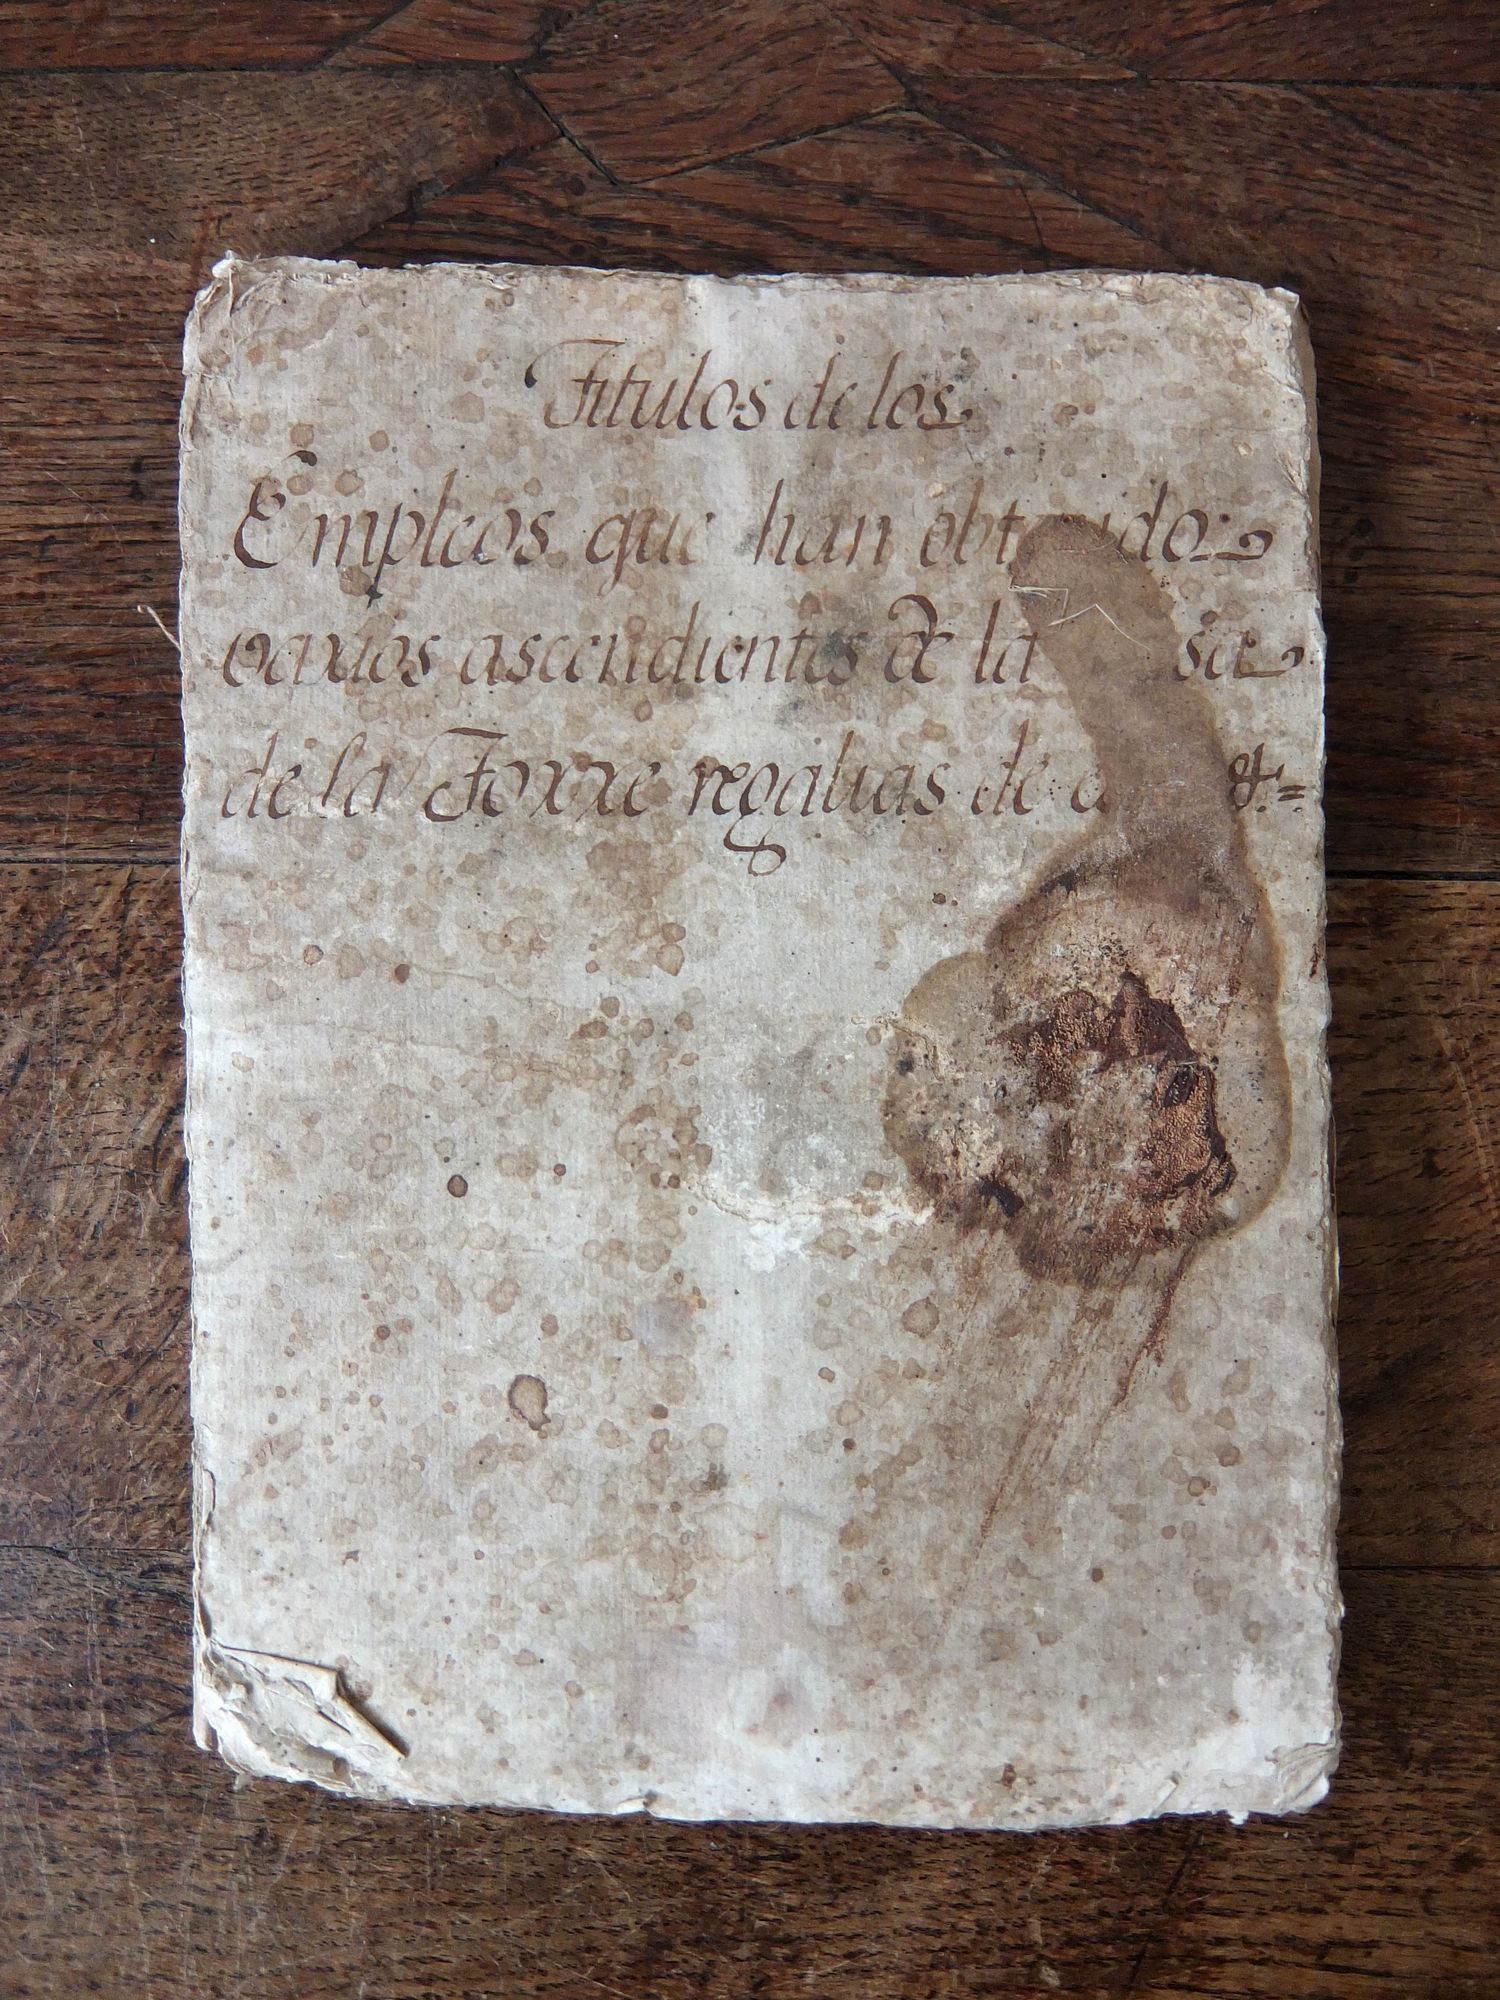 Titulos de los
Empleos que han obt do
varios ascendientes de la sa
de la Torre regalias de &.=